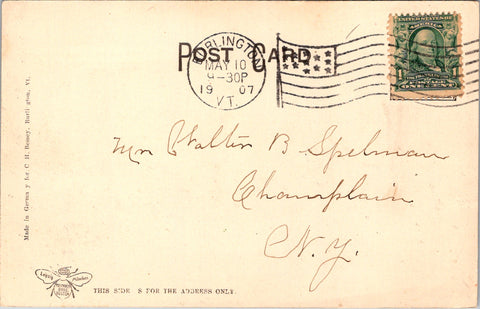 POST CARD
BURLINGTON
MAY 10
9-30P
19 07
VT.
UNITED STATES OF
AMERICA
1
POSTAGE
ONE CENT
Mrs Walter B Spelman
Champlain
N.Y.
Made in Germa y for C. H. Bessey, Burli gton, Vt.
THIS SIDE  S FOR THE ADDRESS ONLY.